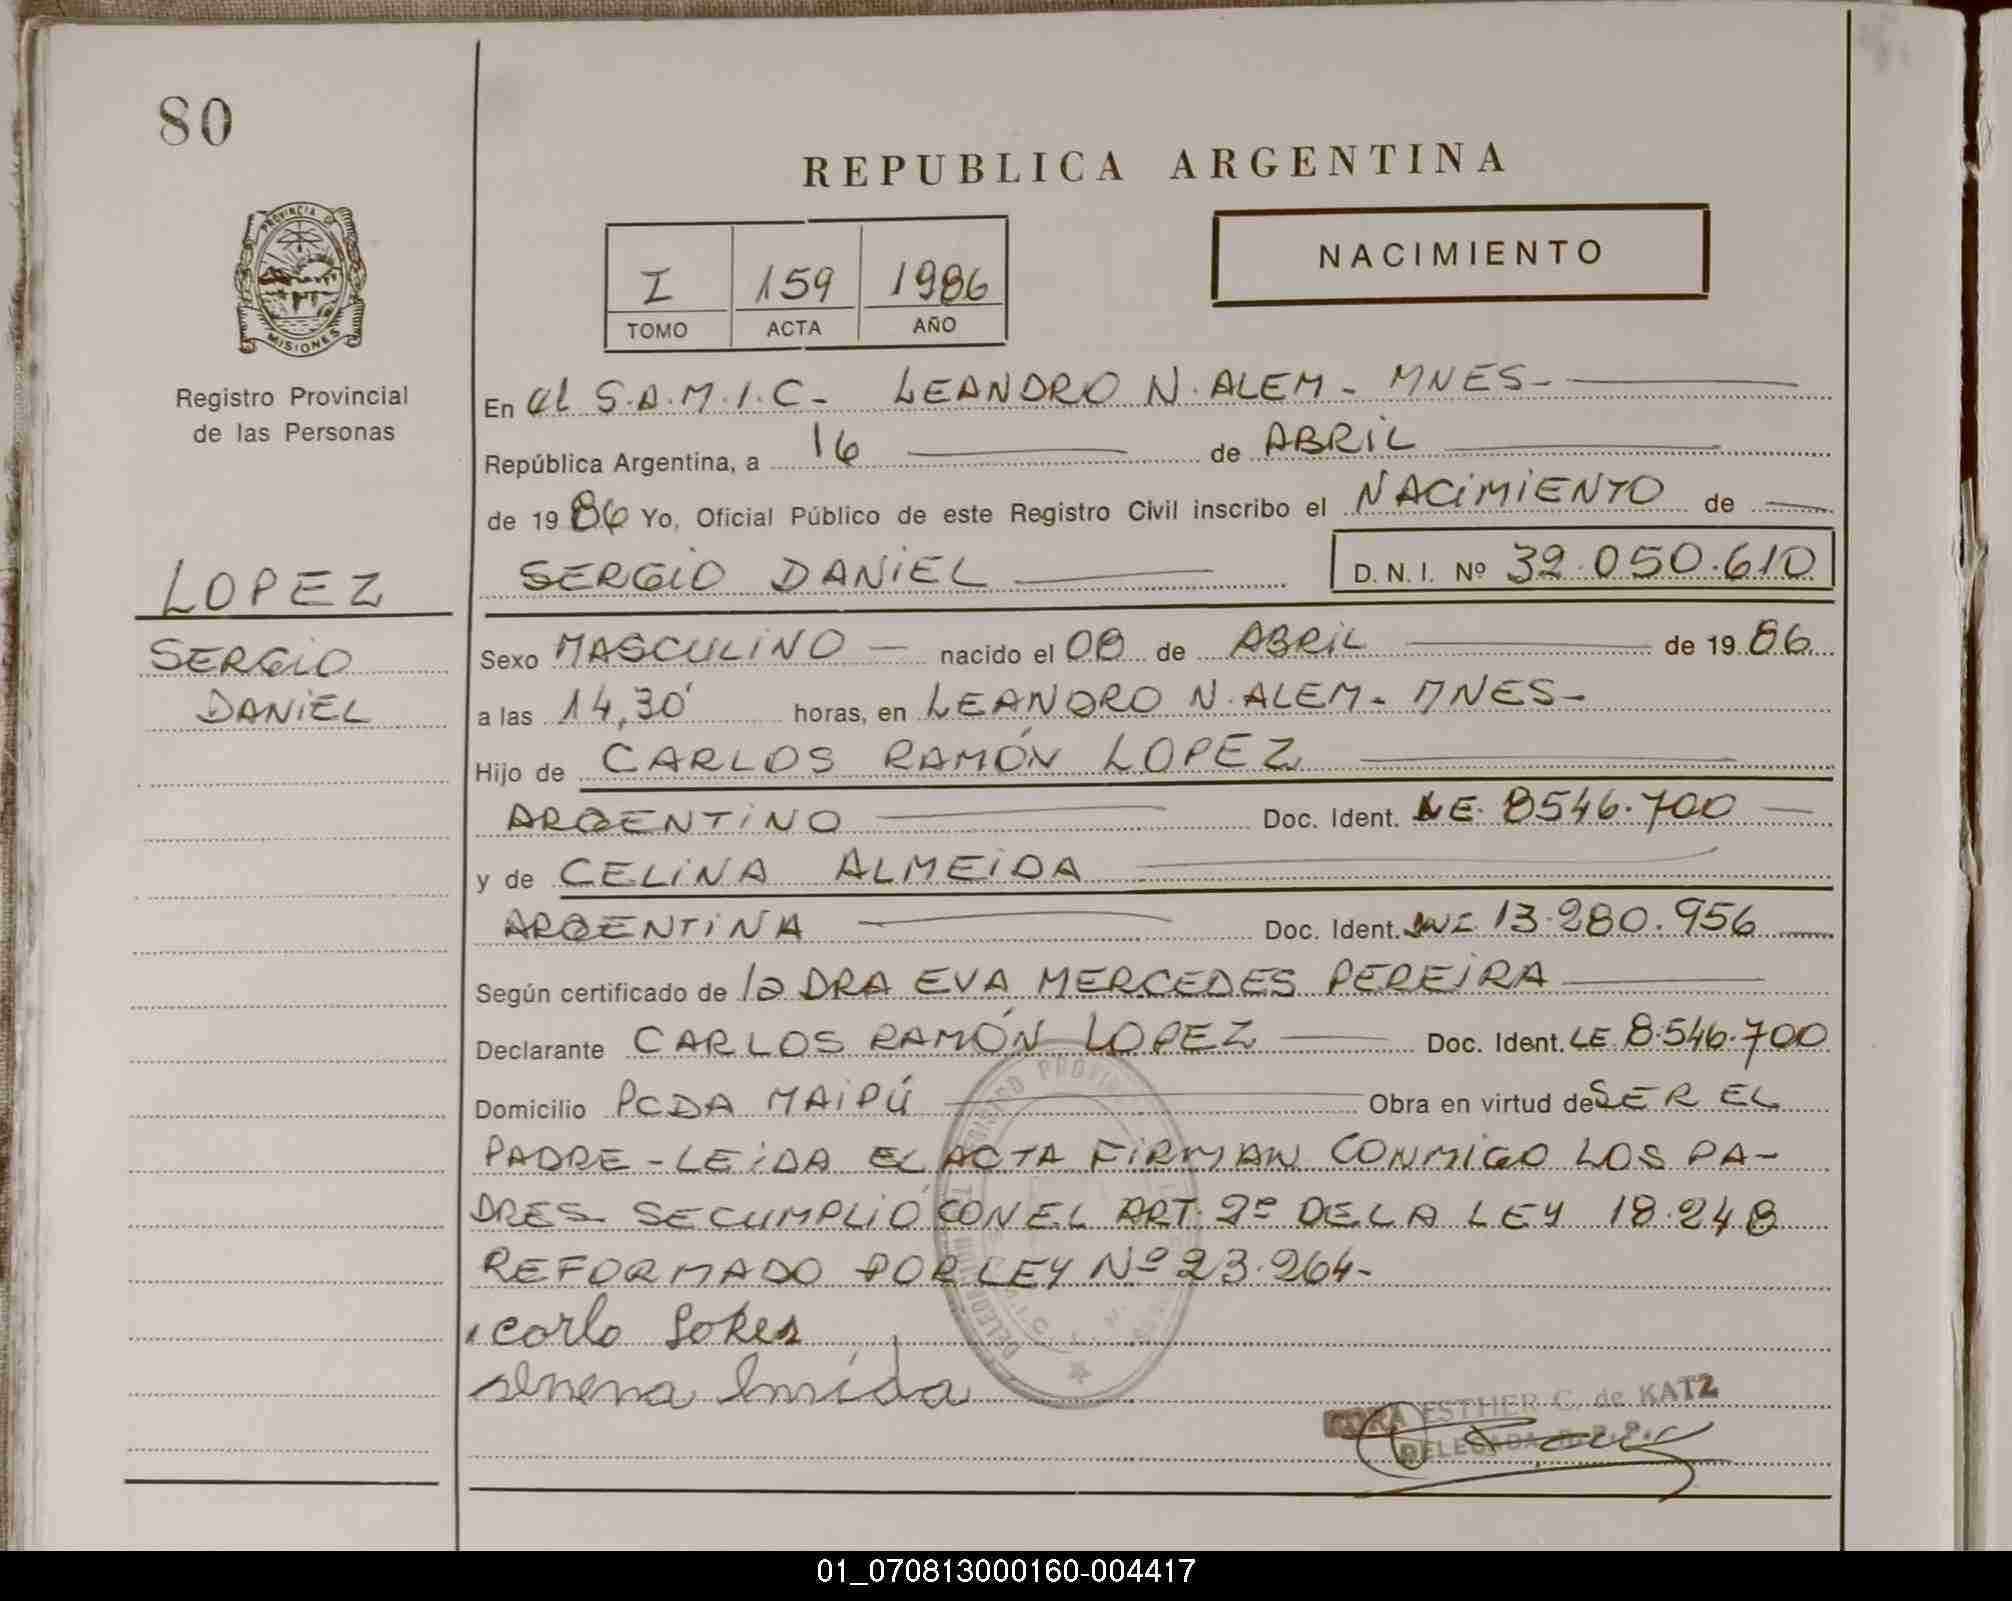 80
REPUBLICA ARGENTINA
PROVINCIA DE
MISIONES
I 159 1986
TOMO ACTA AÑO
NACIMIENTO
Registro Provincial
de las Personas
En el S.A.M.I.C- LEANDRO N. ALEM- MNES-
República Argentina, a 16 de ABRIL
de 1986 Yo, Oficial Público de este Registro Civil inscribo el NACIMIENTO de
LOPEZ
SERGIO DANIEL D.N.I. Nº 32.050.610
SERGIO
DANIEL
Sexo MASCULINO - nacido el 08 de ABRIL de 1986
a las 14,30' horas, en LEANDRO N. ALEM- MNES-
Hijo de CARLOS RAMÓN LOPEZ
ARGENTINO Doc. Ident. LE. 8546.700
y de CELINA ALMEIDA
ARGENTINA Doc. Ident. 13.280.956
Según certificado de la DRA EVA MERCEDES PEREIRA
Declarante CARLOS RAMÓN LOPEZ Doc. Ident. LE 8.546.700
Domicilio PCDA MAIPÚ Obra en virtud de SER EL
PADRE - LEIDA EL ACTA FIRMAN CONMIGO LOS PA-
DRES- SE CUMPLIÓ CON EL ART. 2º DE LA LEY 18.248
REFORMADO POR LEY Nº 23.264-
carlo Lokes
ESTHER C. de KATZ
DELEGADA R.P.P.
01_070813000160-004417